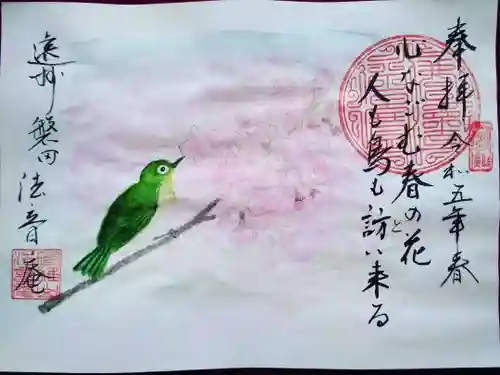 奉拝 令和五年春
心なごむ春の花
と
人も鳥も訪い来る
遠州 磐田 法音庵